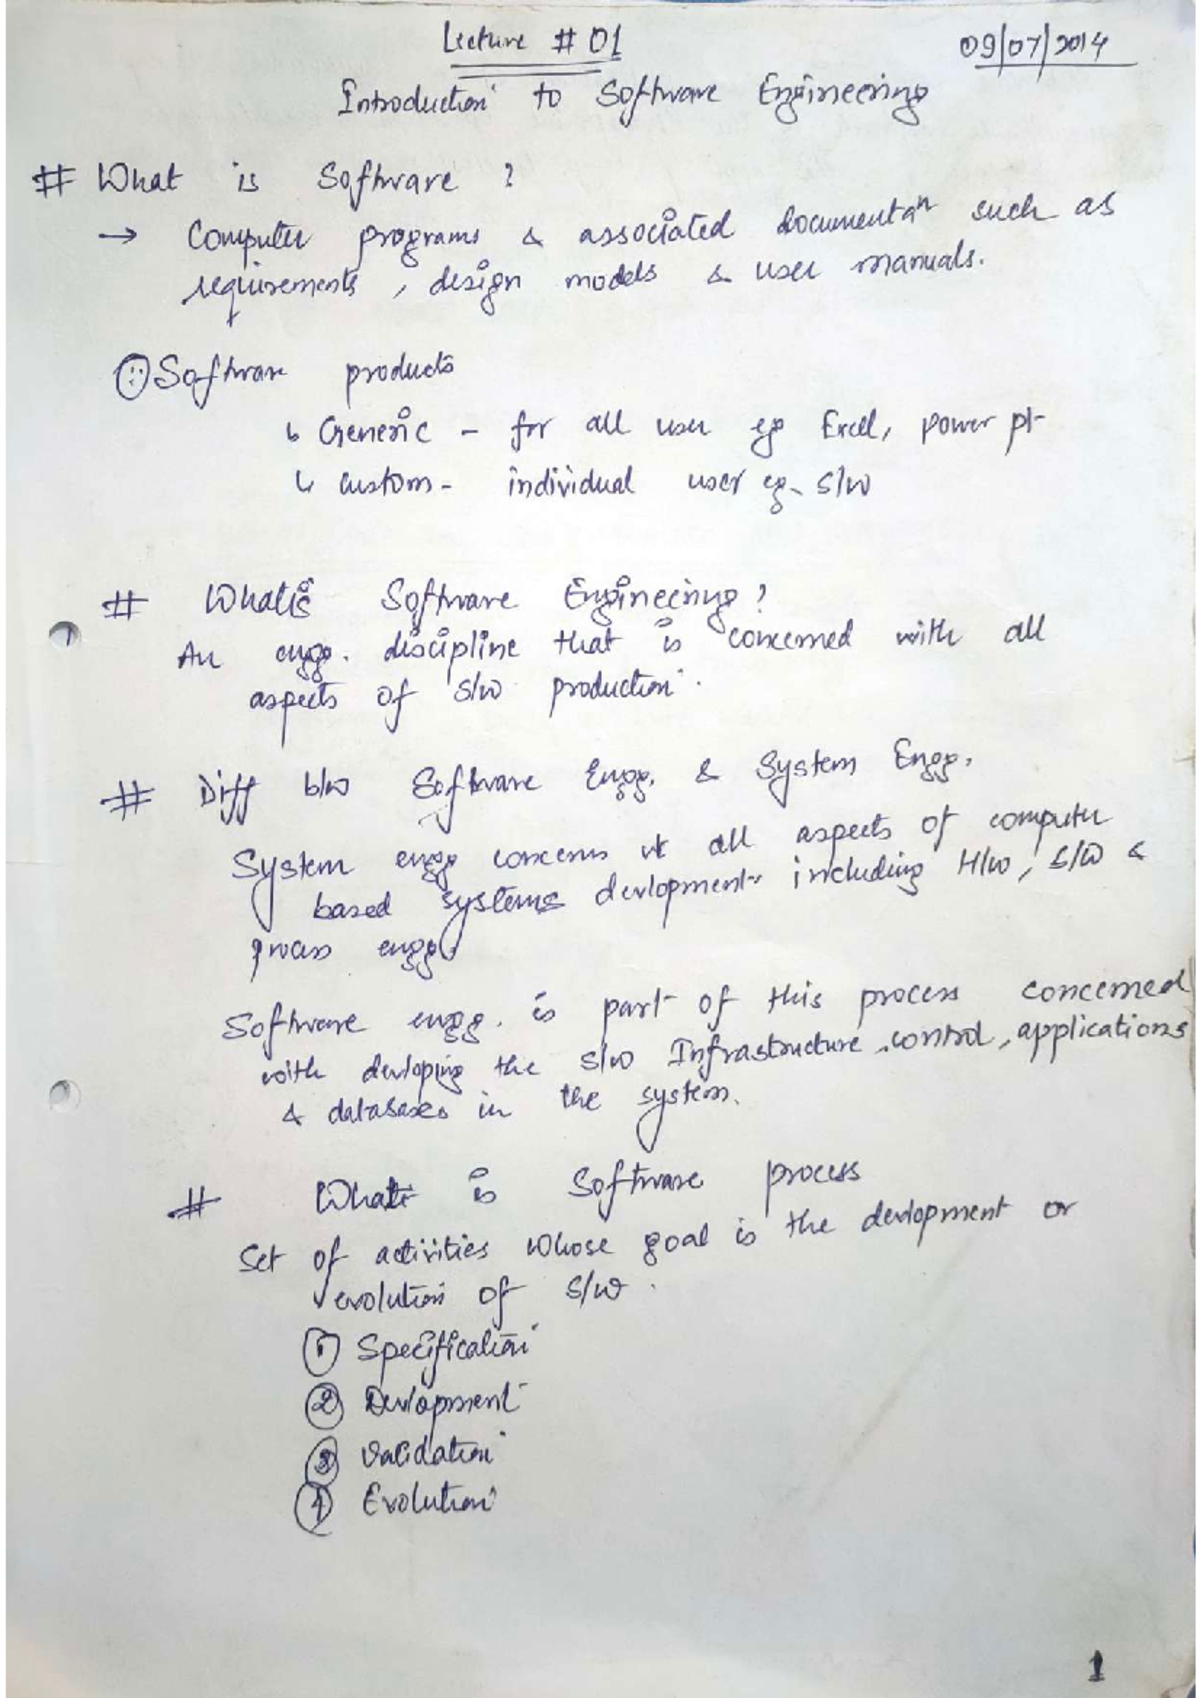 Lecture # 01
09/07/2014
Introduction to Software Engineering
# What is Software ?
→ Computer programs & associated documentaⁿ such as
requirements, design models & user manuals.
Software products
↳ Generic - for all user eg Excel, power pt
↳ custom - individual user eg - S/W
# What is Software Engineering?
An engg. discipline that is concerned with all
aspects of S/W production.
# Diff b/w Software Engg. & System Engg.
System engg concerns wt all aspects of computer
based systems devlopment including H/W, S/W &
process engg.
Software engg. is part of this process concerned
with devloping the S/W Infrastructure, control, applications
& databases in the system.
# What is Software process
Set of activities whose goal is the devlopment or
evolution of S/W.
① Specification
② Devlopment
③ Validation
④ Evolution
1